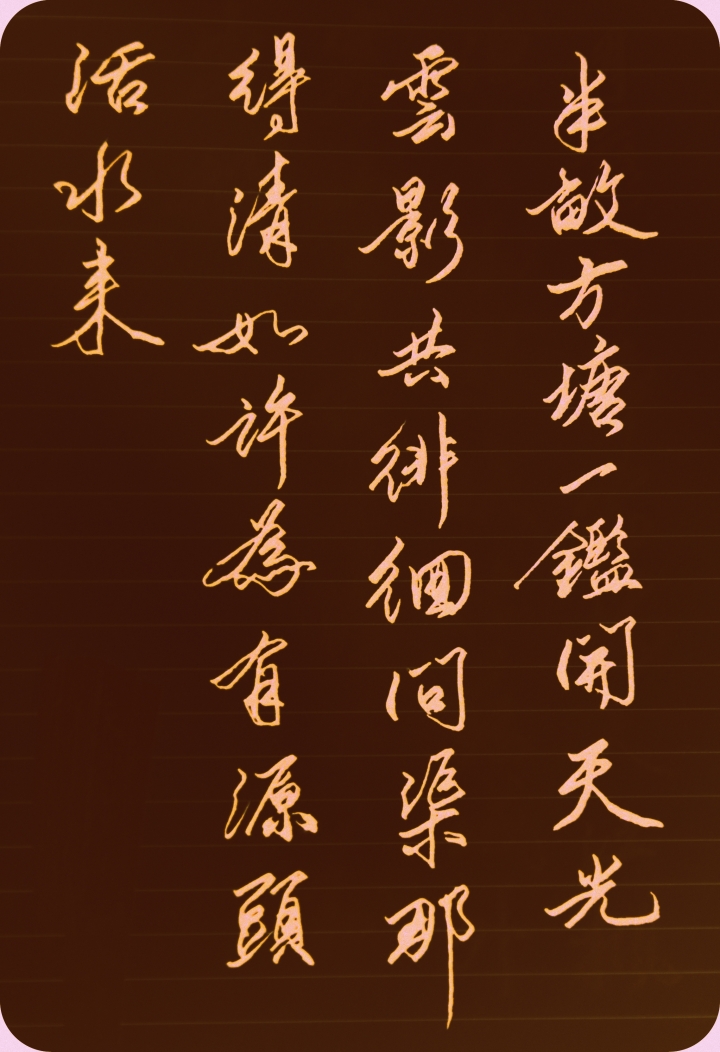 半畝方塘一鑑開天光
雲影共徘徊問渠那
得清如許為有源頭
活水来